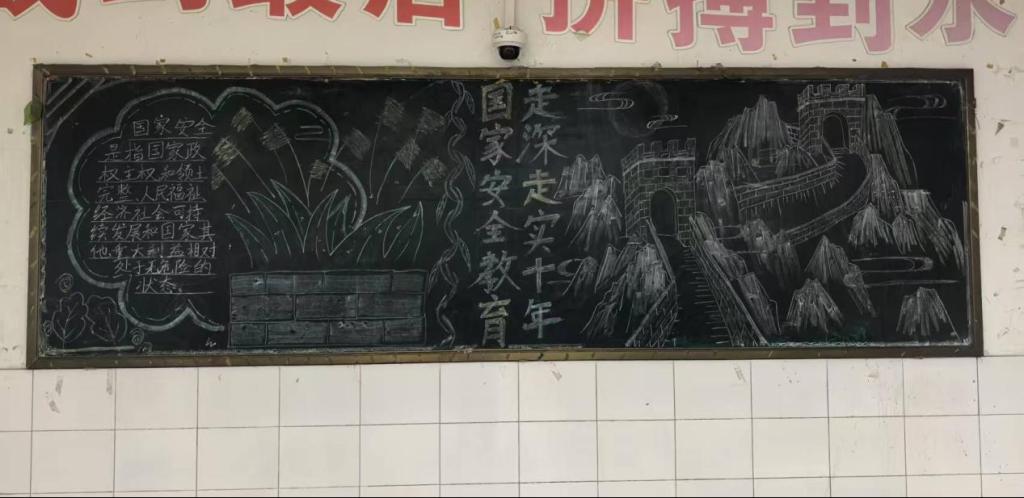 到最后 拼搏到永
国家安全
是指国家政
权主权和领土
完整、人民福祉
经济社会可持
续发展和国家其
他重大利益相对
处于无危险的
状态
国家安全教育
走深走实十年